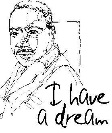 I have
a dream